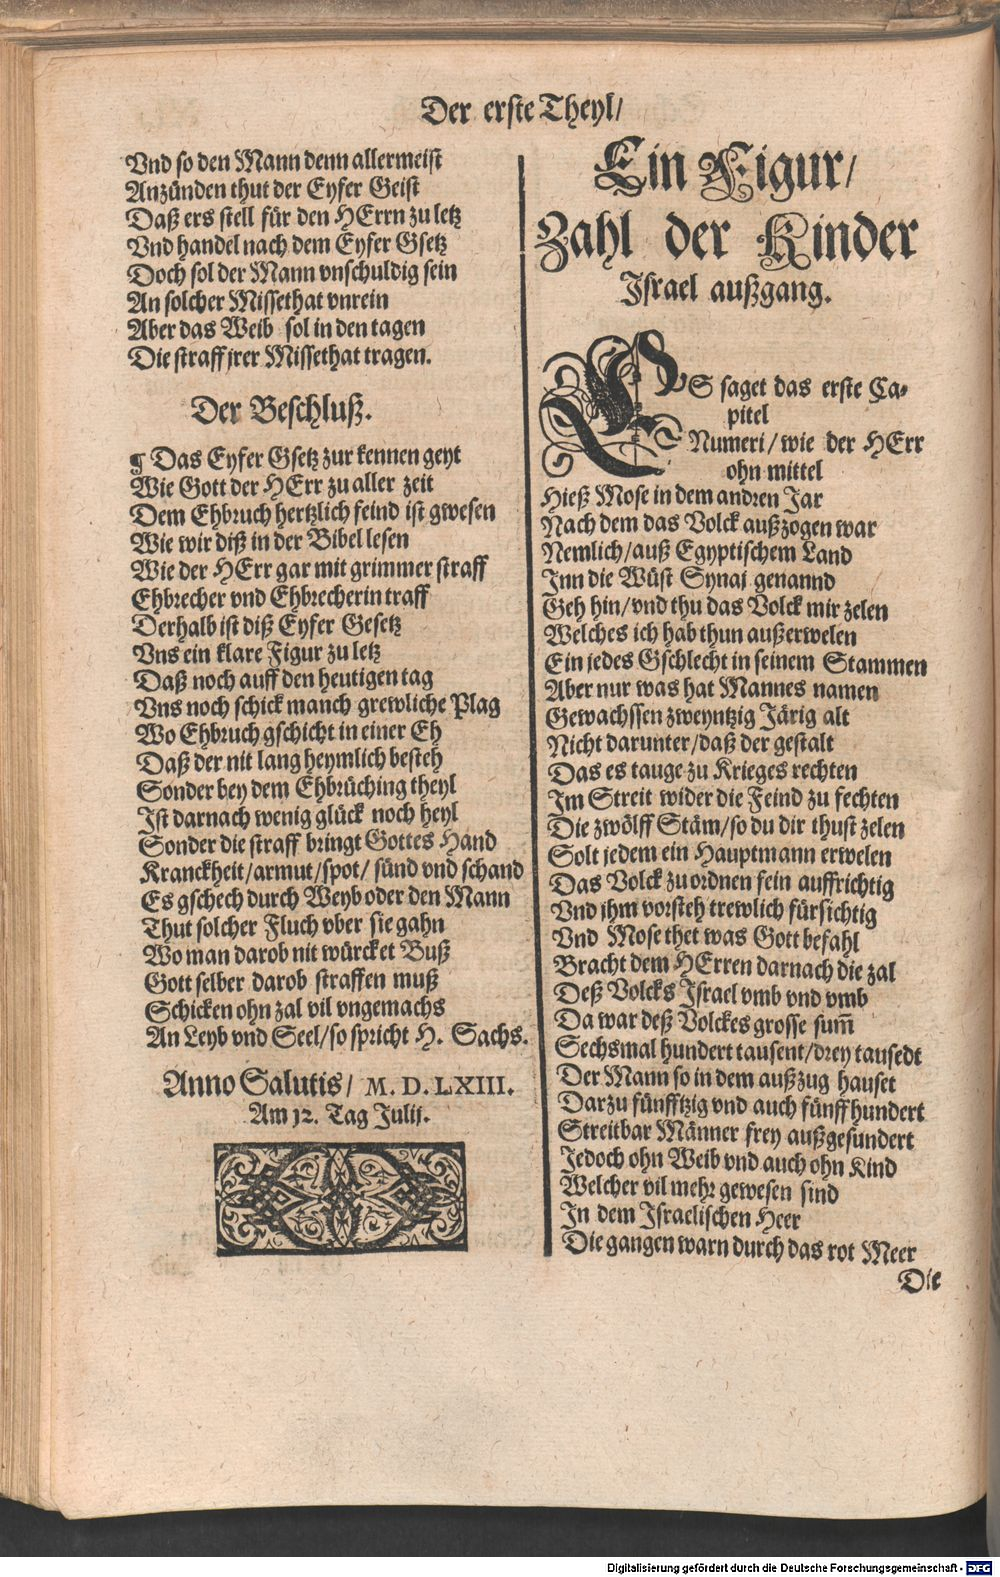 Der erste Theyl/
Vnd so den Mann denn allermeist
Anzünden thut der Eyfer Geist
Daß ers stell für den HErrn zu letz
Vnd handel nach dem Eyfer Gsetz
Doch sol der Mann vnschuldig sein
An solcher Missethat vnrein
Aber das Weib sol in den tagen
Die straff jrer Missethat tragen.
Der Beschluß.
¶ Das Eyfer Gsetz zur kennen geyt
Wie Gott der HErr zu aller zeit
Dem Ehbruch hertzlich feind ist gwesen
Wie wir diß in der Bibel lesen
Wie der HErr gar mit grimmer straff
Ehbrecher vnd Ehbrecherin traff
Derhalb ist diß Eyfer Gesetz
Vns ein klare Figur zu letz
Daß noch auff den heutigen tag
Vns noch schick manch grewliche Plag
Wo Ehbruch gschicht in einer Eh
Daß der nit lang heymlich besteh
Sonder bey dem Ehbrüching theyl
Ist darnach wenig glück noch heyl
Sonder die straff bringt Gottes Hand
Kranckheit/armut/spot/ sünd vnd schand
Es gschech durch Weyb oder den Mann
Thut solcher Fluch vber sie gahn
Wo man darob nit würcket Buß
Gott selber darob straffen muß
Schicken ohn zal vil vngemachs
An Leyb vnd Seel/so spricht H. Sachs.
Anno Salutis/ M. D. LXIII.
Am 12. Tag Julij.
Ein Figur/
Zahl der Kinder
Israel außgang.
ES saget das erste Ca-
pitel
Numeri/wie der HErr
ohn mittel
Hieß Mose in dem andren Jar
Nach dem das Volck außzogen war
Nemlich/auß Egyptischem Land
Inn die Wüst Synaj genannd
Geh hin/vnd thu das Volck mir zelen
Welches ich hab thun außerwelen
Ein jedes Gschlecht in seinem Stammen
Aber nur was hat Mannes namen
Gewachssen zweyntzig Järig alt
Nicht darunter/daß der gestalt
Das es tauge zu Krieges rechten
Im Streit wider die Feind zu fechten
Die zwölff Stäm/so du dir thust zelen
Solt jedem ein Hauptmann erwelen
Das Volck zu ordnen fein auffrichtig
Vnd jhm vorsteh trewlich fürsichtig
Vnd Mose thet was Gott befahl
Bracht dem HErren darnach die zal
Deß Volcks Israel vmb vnd vmb
Da war deß Volckes grosse sum̃
Sechsmal hundert tausent/drey tausedt
Der Mann so in dem außzug hauset
Darzu fünfftzig vnd auch fünffhundert
Streitbar Männer frey außgesundert
Jedoch ohn Weib vnd auch ohn Kind
Welcher vil mehr gewesen sind
In dem Israelischen Heer
Die gangen warn durch das rot Meer
Die
Digitalisierung gefördert durch die Deutsche Forschungsgemeinschaft - DFG